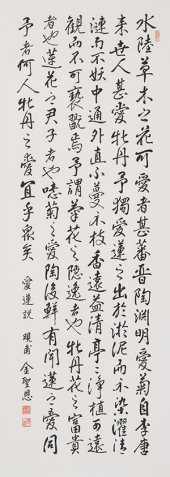 水陸草木之花可愛者甚蕃晉陶淵明愛菊自李唐
来世人甚愛牡丹予獨愛蓮之出於淤泥而不染濯清
漣而不妖中通外直不蔓不枝香遠益清亭〻淨植可遠
觀而不可褻翫焉予謂菊花之隱逸者也牡丹花之富貴
者也蓮花之君子者也噫菊之愛陶後鮮有聞蓮之愛同
予者何人牡丹之愛宜乎衆矣 愛蓮說 甫 金聖恩